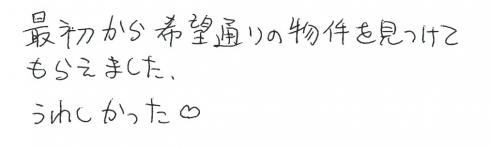 最初から希望通りの物件を見つけて
もらえました、
うれしかった♡